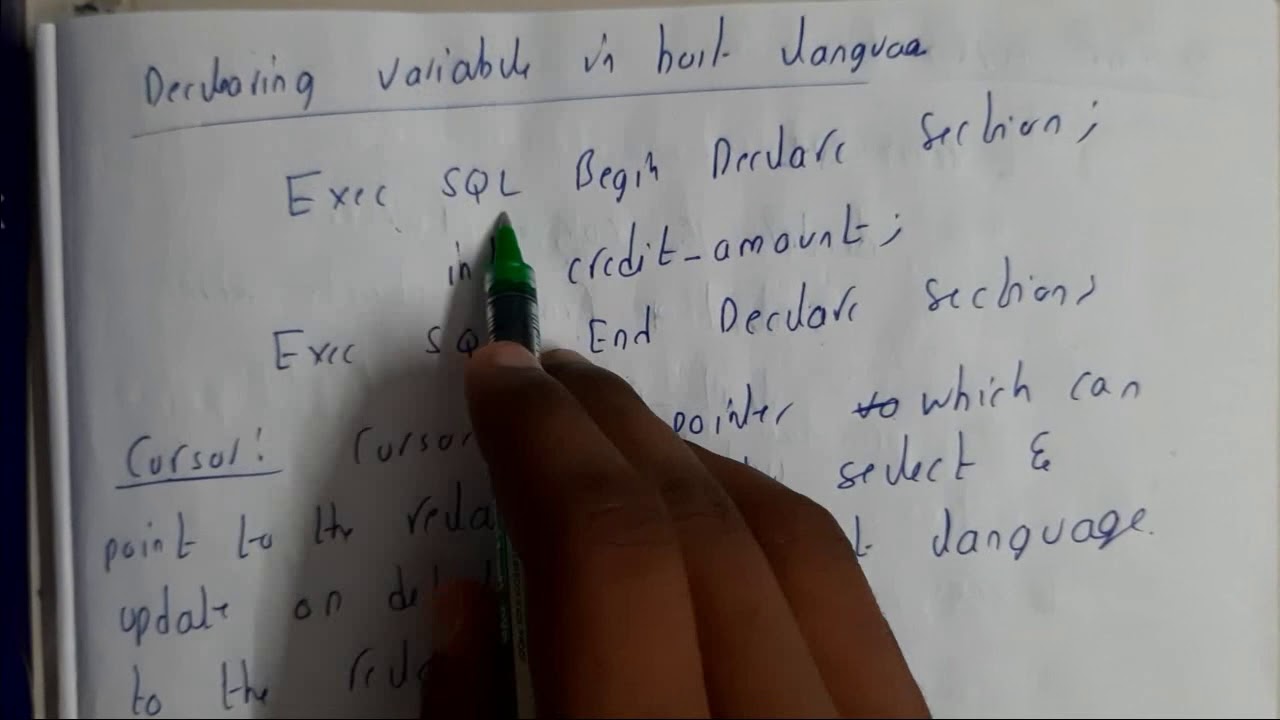 Declaring variable in host language
Exec SQL Begin Declare section;
int credit-amount;
Exec SQL End Declare section;
Cursor: Cursor pointer to which can
point to the select &
update on language.
to the